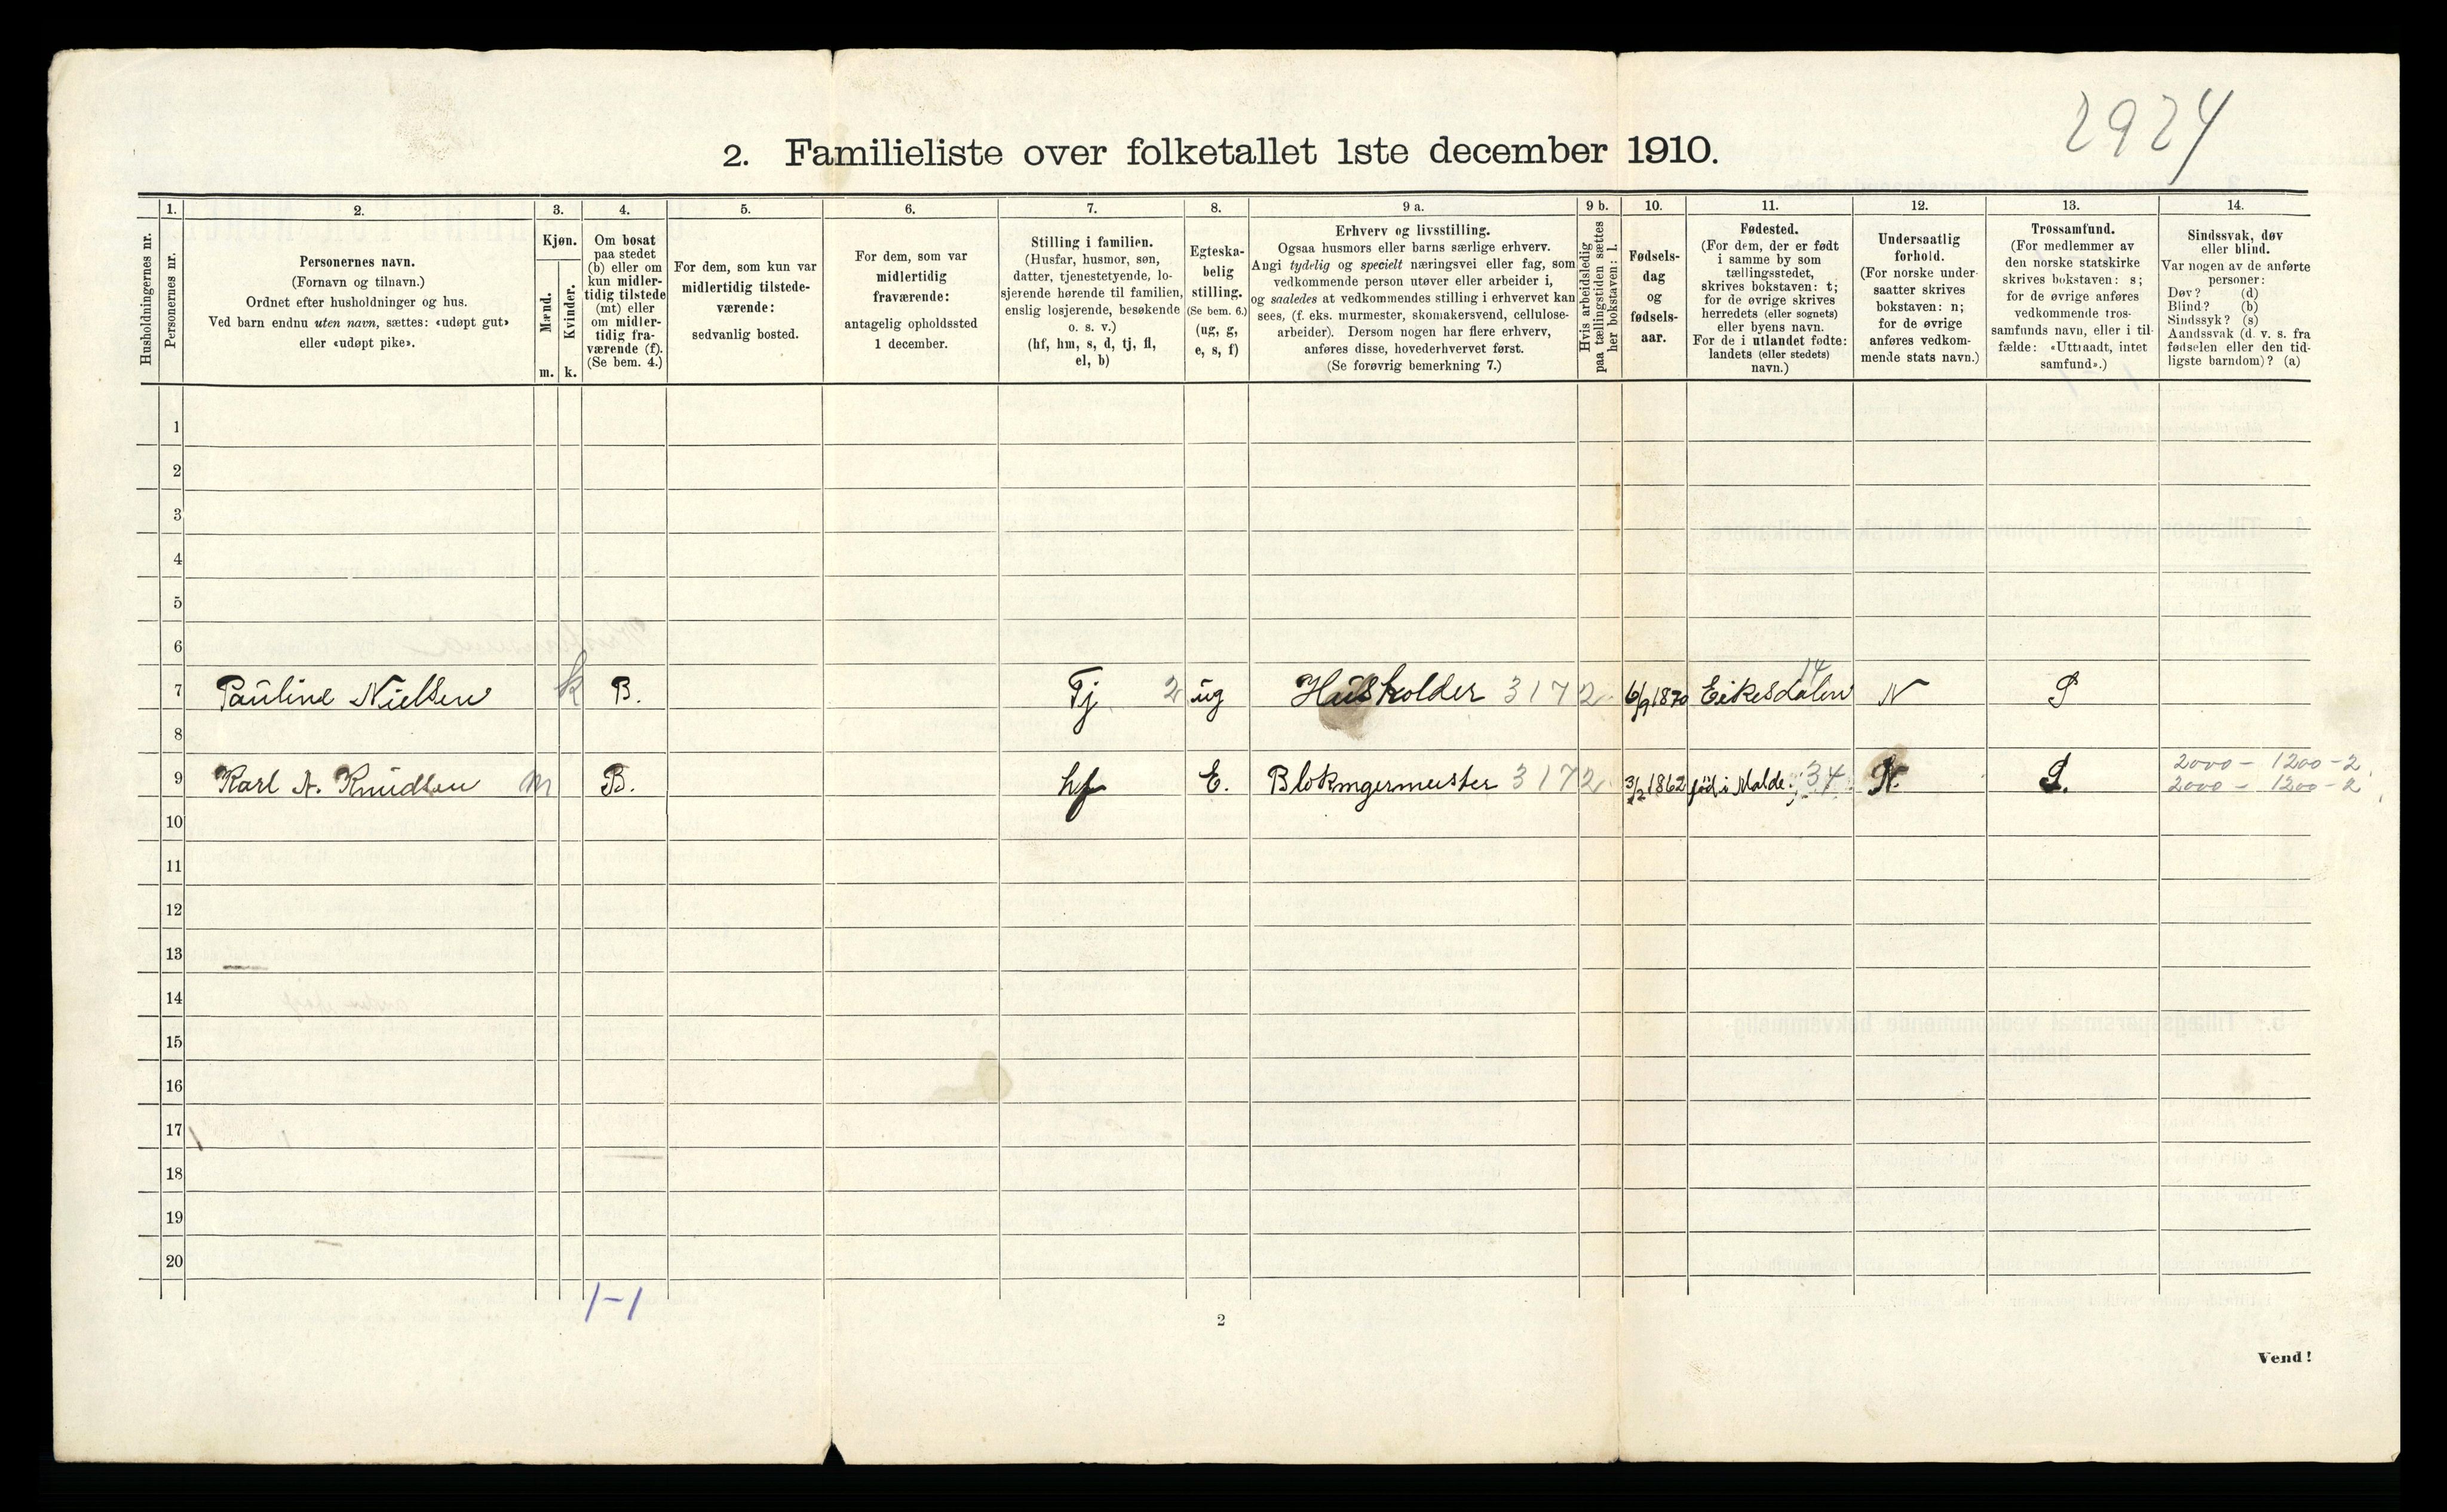 2924
2. Familieliste over folketallet 1ste december 1910.
1. 2. 3. 4. 5. 6. 7. 8. 9 a. 9 b. 10. 11. 12. 13. 14.
Husholdningernes nr.
Personernes nr.
Personernes navn.
(Fornavn og tilnavn.)
Ordnet efter husholdninger og hus.
Ved barn endnu uten navn, sættes: «udøpt gut»
eller «udøpt pike».
Kjøn.
Mænd.
Kvinder.
m. k.
Om bosat
paa stedet
(b) eller om
kun midler-
tidig tilstede
(mt) eller
om midler-
tidig fra-
værende (f).
(Se bem. 4.)
For dem, som kun var
midlertidig tilstede-
værende:
sedvanlig bosted.
For dem, som var
midlertidig
fraværende:
antagelig opholdssted
1 december.
Stilling i familien.
(Husfar, husmor, søn,
datter, tjenestetyende, lo-
sjerende hørende til familien,
enslig losjerende, besøkende
o. s. v.)
(hf, hm, s, d, tj, fl,
el, b)
Egteska-
belig
stilling.
(Se bem. 6.)
(ug, g,
e, s, f)
Erhverv og livsstilling.
Ogsaa husmors eller barns særlige erhverv.
Angi tydelig og specielt næringsvei eller fag, som
vedkommende person utøver eller arbeider i,
og saaledes at vedkommendes stilling i erhvervet kan
sees, (f. eks. murmester, skomakersvend, cellulose-
arbeider). Dersom nogen har flere erhverv,
anføres disse, hovederhvervet først.
(Se forøvrig bemerkning 7.)
Hvis arbeidsledig
paa tællingstiden sættes
her bokstaven: l.
Fødsels-
dag
og
fødsels-
aar.
Fødested.
(For dem, der er født
i samme by som
tællingsstedet,
skrives bokstaven: t;
for de øvrige skrives
herredets (eller sognets)
eller byens navn.
For de i utlandet fødte:
landets (eller stedets)
navn.)
Undersaatlig
forhold.
(For norske under-
saatter skrives
bokstaven: n;
for de øvrige
anføres vedkom-
mende stats navn.)
Trossamfund.
(For medlemmer av
den norske statskirke
skrives bokstaven: s;
for de øvrige anføres
vedkommende tros-
samfunds navn, eller i til-
fælde: «Uttraadt, intet
samfund».)
Sindssvak, døv
eller blind.
Var nogen av de anførte
personer:
Døv? (d)
Blind? (b)
Sindssyk? (s)
Aandssvak (d. v. s. fra
fødselen eller den tid-
ligste barndom)? (a)
1
2
3
4
5
6
7 Pauline Nielsen k B. Tj 2 ug Husholder 3172 6/9 1870 Eikesdalen 14 N S
8
9 Karl A. Knudsen m B. hf E. 3172 3/2 1862 34 N. S. 2000 - 1200 - 2
2000 - 1200 - 2
10
11
12
13
14
15
16
17
18
19
20
1-1
2
Vend!